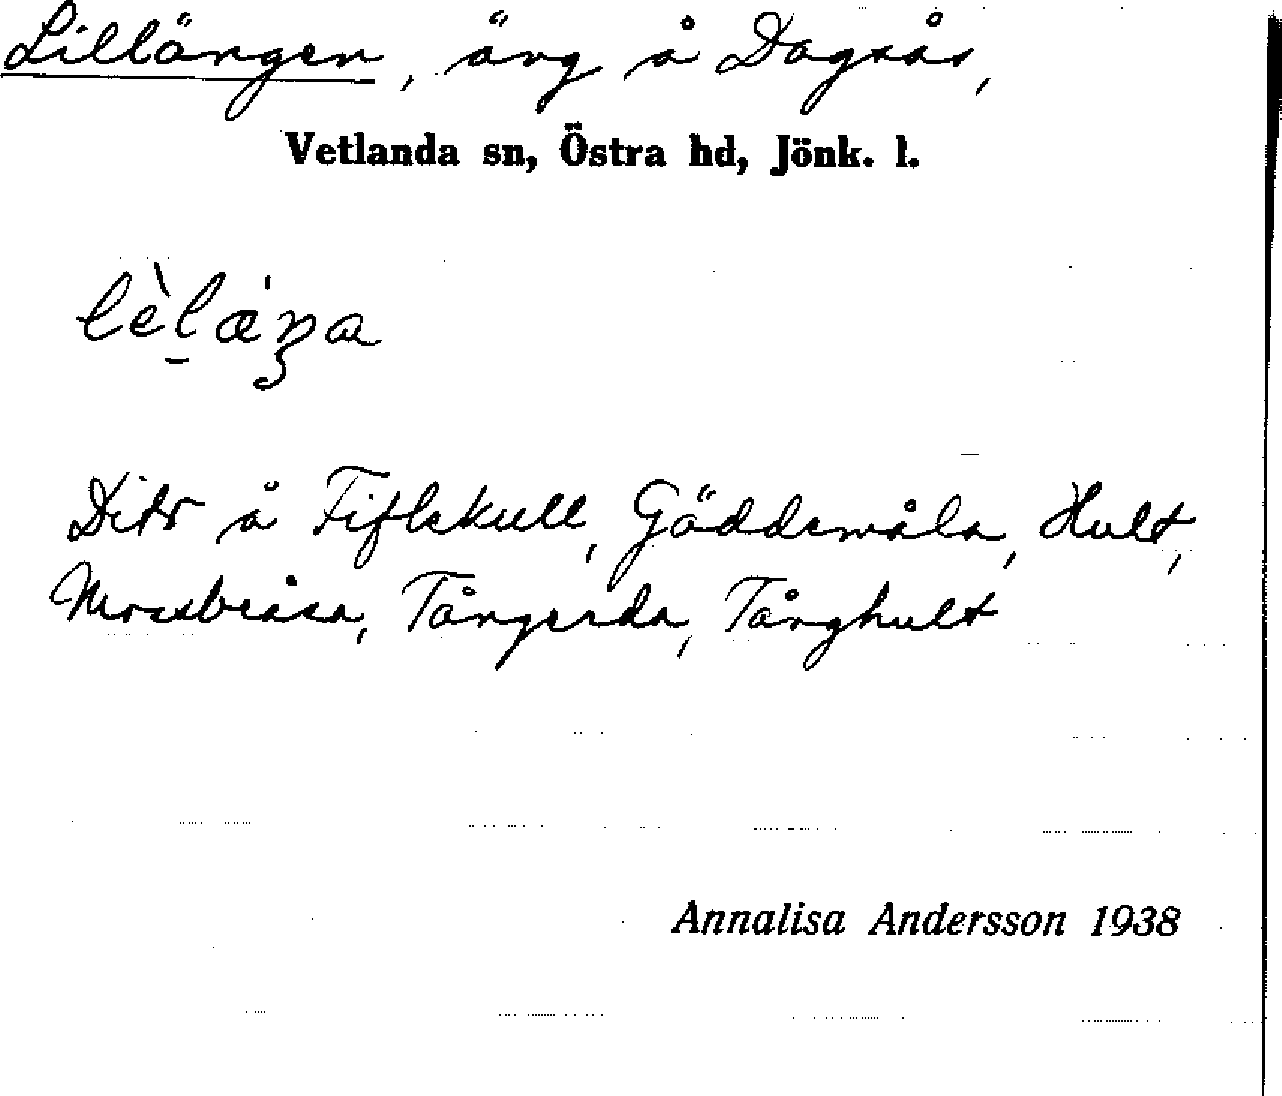 Lillängen, äng å Dagsås,
Vetlanda sn, Östra hd, Jönk. l.
lèlæ'ŋa
Dito å Fiflekull, Gäddemåla, Hult,
Mossbråsa, Tångerda, Tånghult
Annalisa Andersson 1938